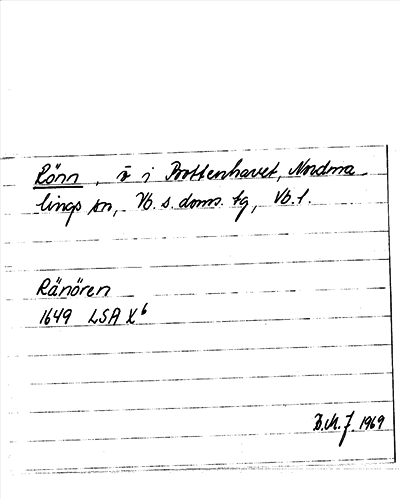 Rönn, ö i Bottenhavet, Nordma-
lings sn, Vb. s. doms. tg, Vb. l.
Ränören
1649 LSA X6
D.M.J. 1969